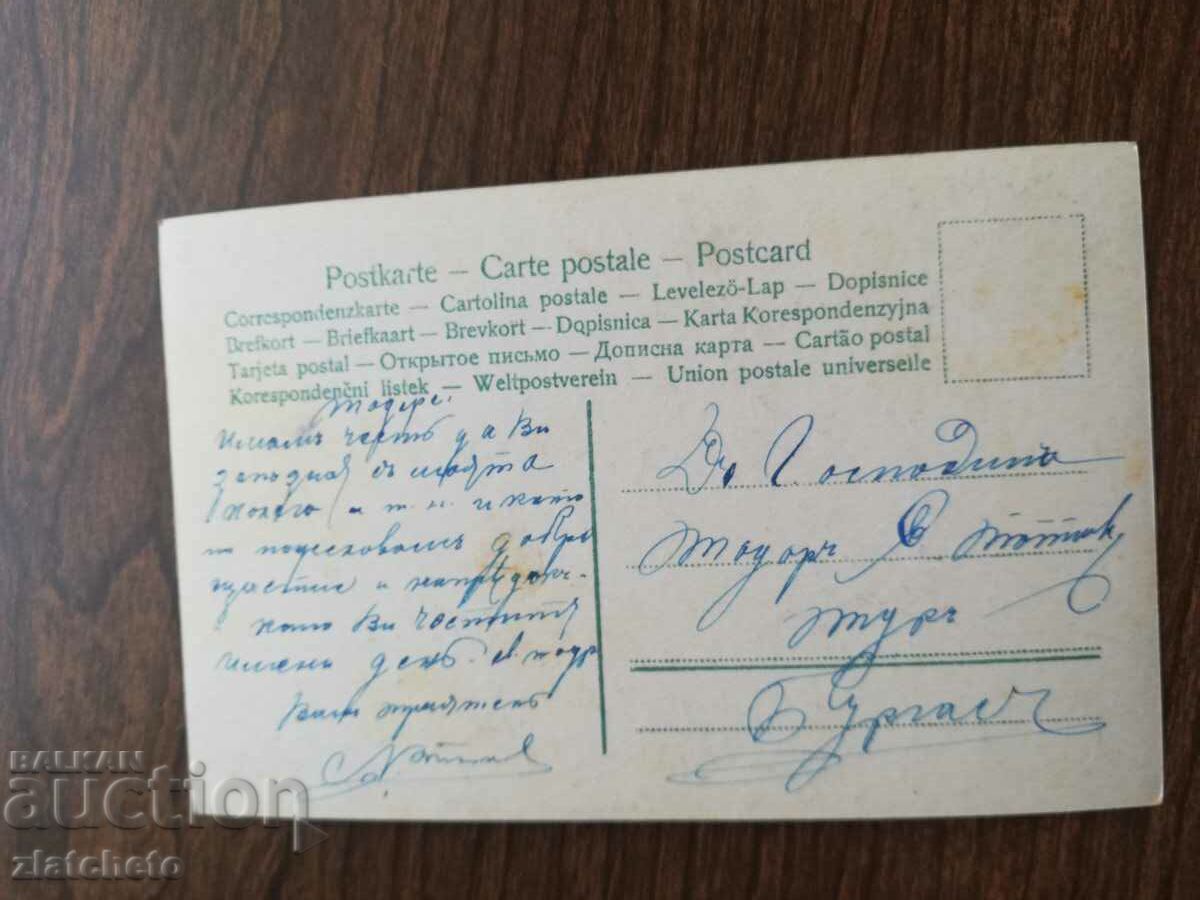 Postkarte – Carte postale – Postcard
Correspondenzkarte – Cartolina postale – Levelező-Lap – Dopisnice
Brefkort – Briefkaart – Brevkort – Dopisnica – Karta Korespondenzyjna
Tarjeta postal – Открытое письмо – Дописна карта – Cartão postal
Korespondenčni listek – Weltpostverein – Union postale universelle
Тодоре
Имамъ честь да Ви
съ моята
и т. н. и като
пожелавамъ добро
щастие и
като Ви честитя
имени день
Ваш приятель
Господина
Тодоръ
Бургасъ
BALKAN
auction
zlatcheto